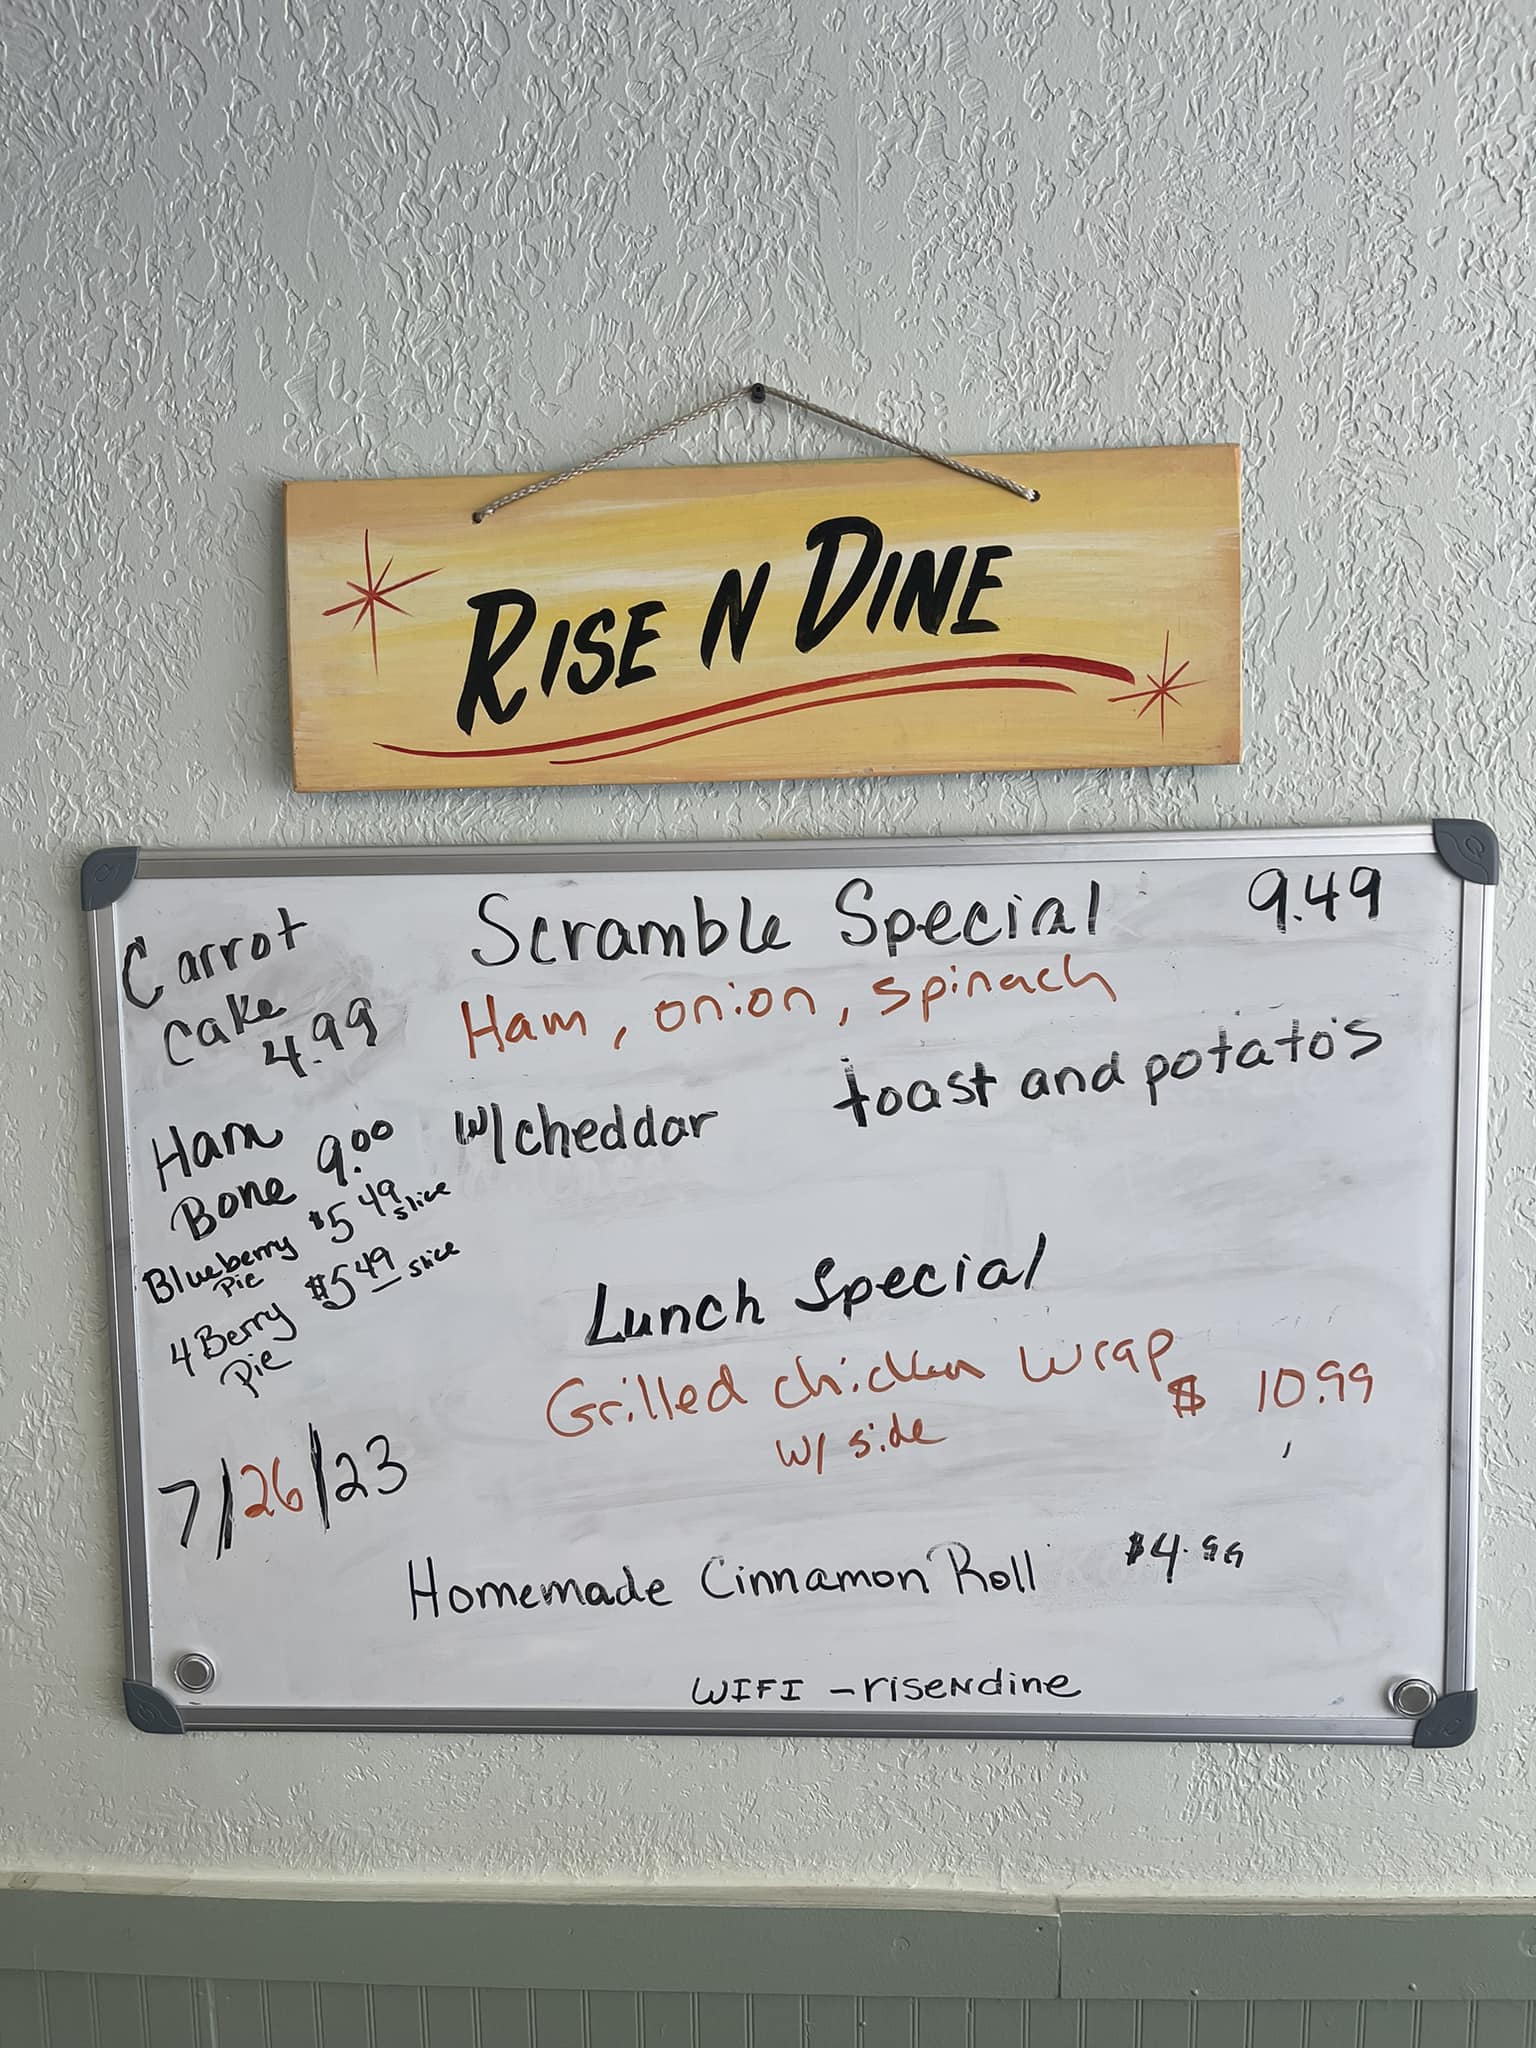 RISE N DINE
Carrot
Cake
4.99
Ham
Bone 9.00
Blueberry $5 49 slice
Pie
4 Berry $5 49 slice
Pie
7/26/23
Scramble Special 9.49
Ham, onion, spinach
w/cheddar toast and potato's
Lunch Special
Grilled chicken wrap
$ 10.99
w/ side
Homemade Cinnamon Roll $4.99
WIFI - riseNdine